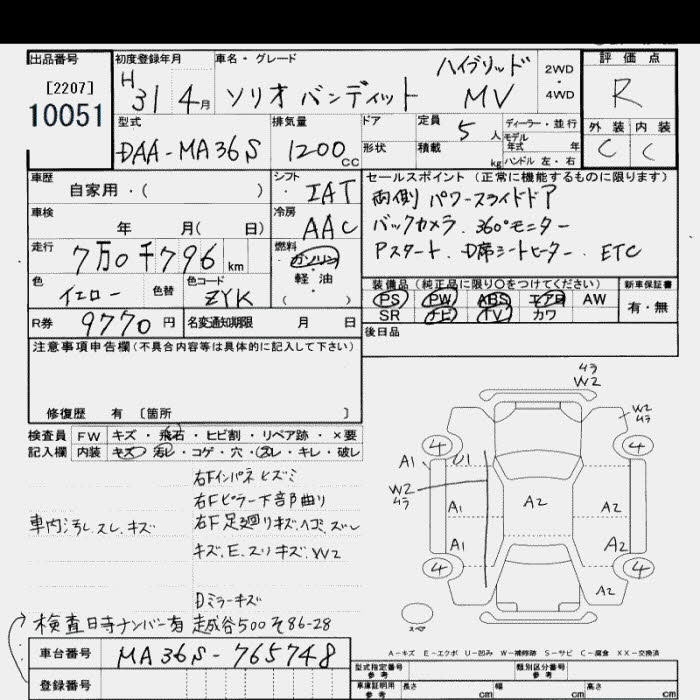 出品番号
[2207]
10051
初度登録年月
H31 4月
車名・グレード
ソリオ バンディット ハイブリッド MV
2WD
4WD
評価点
R
外装 内装
C C
型式
DAA-MA36S
排気量
1200cc
ドア
形状
定員 5人
積載 kg
ディーラー・並行
モデル年式 年
ハンドル 左・右
車歴
自家用・( )
シフト
IAT
セールスポイント (正常に機能するものに限ります)
両側 パワースライドドア
バックカメラ. 360°モニター
Pスタート. D席シートヒーター. ETC
車検
年 月( 日)
冷房
AAC
走行
7万0千796km
燃料
ガソリン
軽油
( )
色
イエロー
色替
色コード
ZYK
装備品 (純正品に限り○をつけてください)
PS PW ABS エアB AW
SR ナビ TV カワ
新車保証書
有・無
R券 9770円
名変通知期限 月 日
後日品
注意事項申告欄(不具合内容等は具体的に記入して下さい)
修復歴 有 [箇所 ]
検査員記入欄
FW キズ・飛石・ヒビ割・リペア跡・×要
内装 キズ・汚レ・コゲ・穴・スレ・キレ・破レ
右Fインパネヒズミ
右Fピラー下部曲り
車内汚れ.スレ.キズ
右F足廻りキズ.ヘコ.ズレ
キズ.E.スリキズ.W2
Dミラーキズ
検査日時ナンバー有 越谷500そ86-28
車台番号 MA36S-765748
登録番号
ムラ
W2
W2
ムラ
4 4
A1 U1
W2
ムラ
A1 A2 A2
A1 A2
4 4
A2
スペア
A-キズ E-エクボ U-凹み W-補修跡 S-サビ C-腐食 XX-交換済
型式指定番号
参考
類別区分番号
参考
車庫証明用
参考
長さ cm 幅 cm 高さ cm